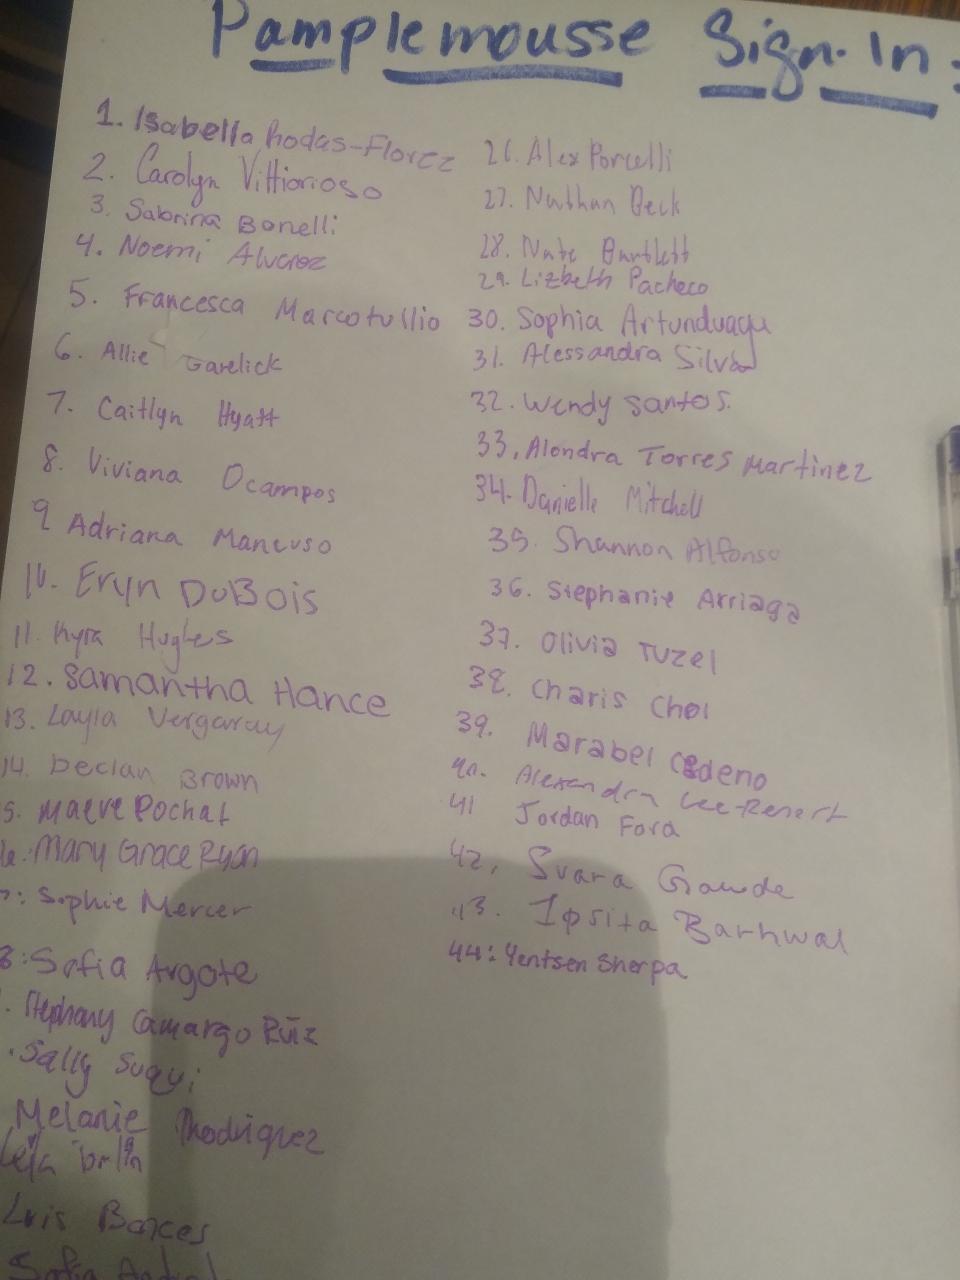 Pamplemousse Sign-In:
1. Isabella Rodas-Florez
2. Carolyn Vittiorioso
3. Sabrina Bonelli
4. Noemi Alvarez
5. Francesca Marcotullio
6. Allie Garelick
7. Caitlyn Hyatt
8. Viviana Ocampos
9 Adriana Mancuso
10. Eryn DuBois
11. Kyra Hughes
12. Samantha Hance
13. Layla Vergaray
14. Declan Brown
5. Maeve Pochat
Mary Grace Ryan
Sophie Mercer
8: Sofia Argote
Stephany Camargo Ruiz
Sally Suqui
Melanie Rodriguez
Luis Bances
Sofia
26. Alex Porcelli
27. Nathan Beck
28. Nate Bartlett
29. Lizbeth Pacheco
30. Sophia Artunduagu
31. Alessandra Silva
32. Wendy Santos.
33. Alondra Torres Martinez
34. Danielle Mitchell
35. Shannon Alfonso
36. Stephanie Arriaga
37. Olivia Tuzel
38. Charis Choi
39. Marabel Cedeno
40. Alexandra
41 Jordan Ford
42. Svara Gawde
43. Ipsita Barnwal
44: Yentsen Sherpa